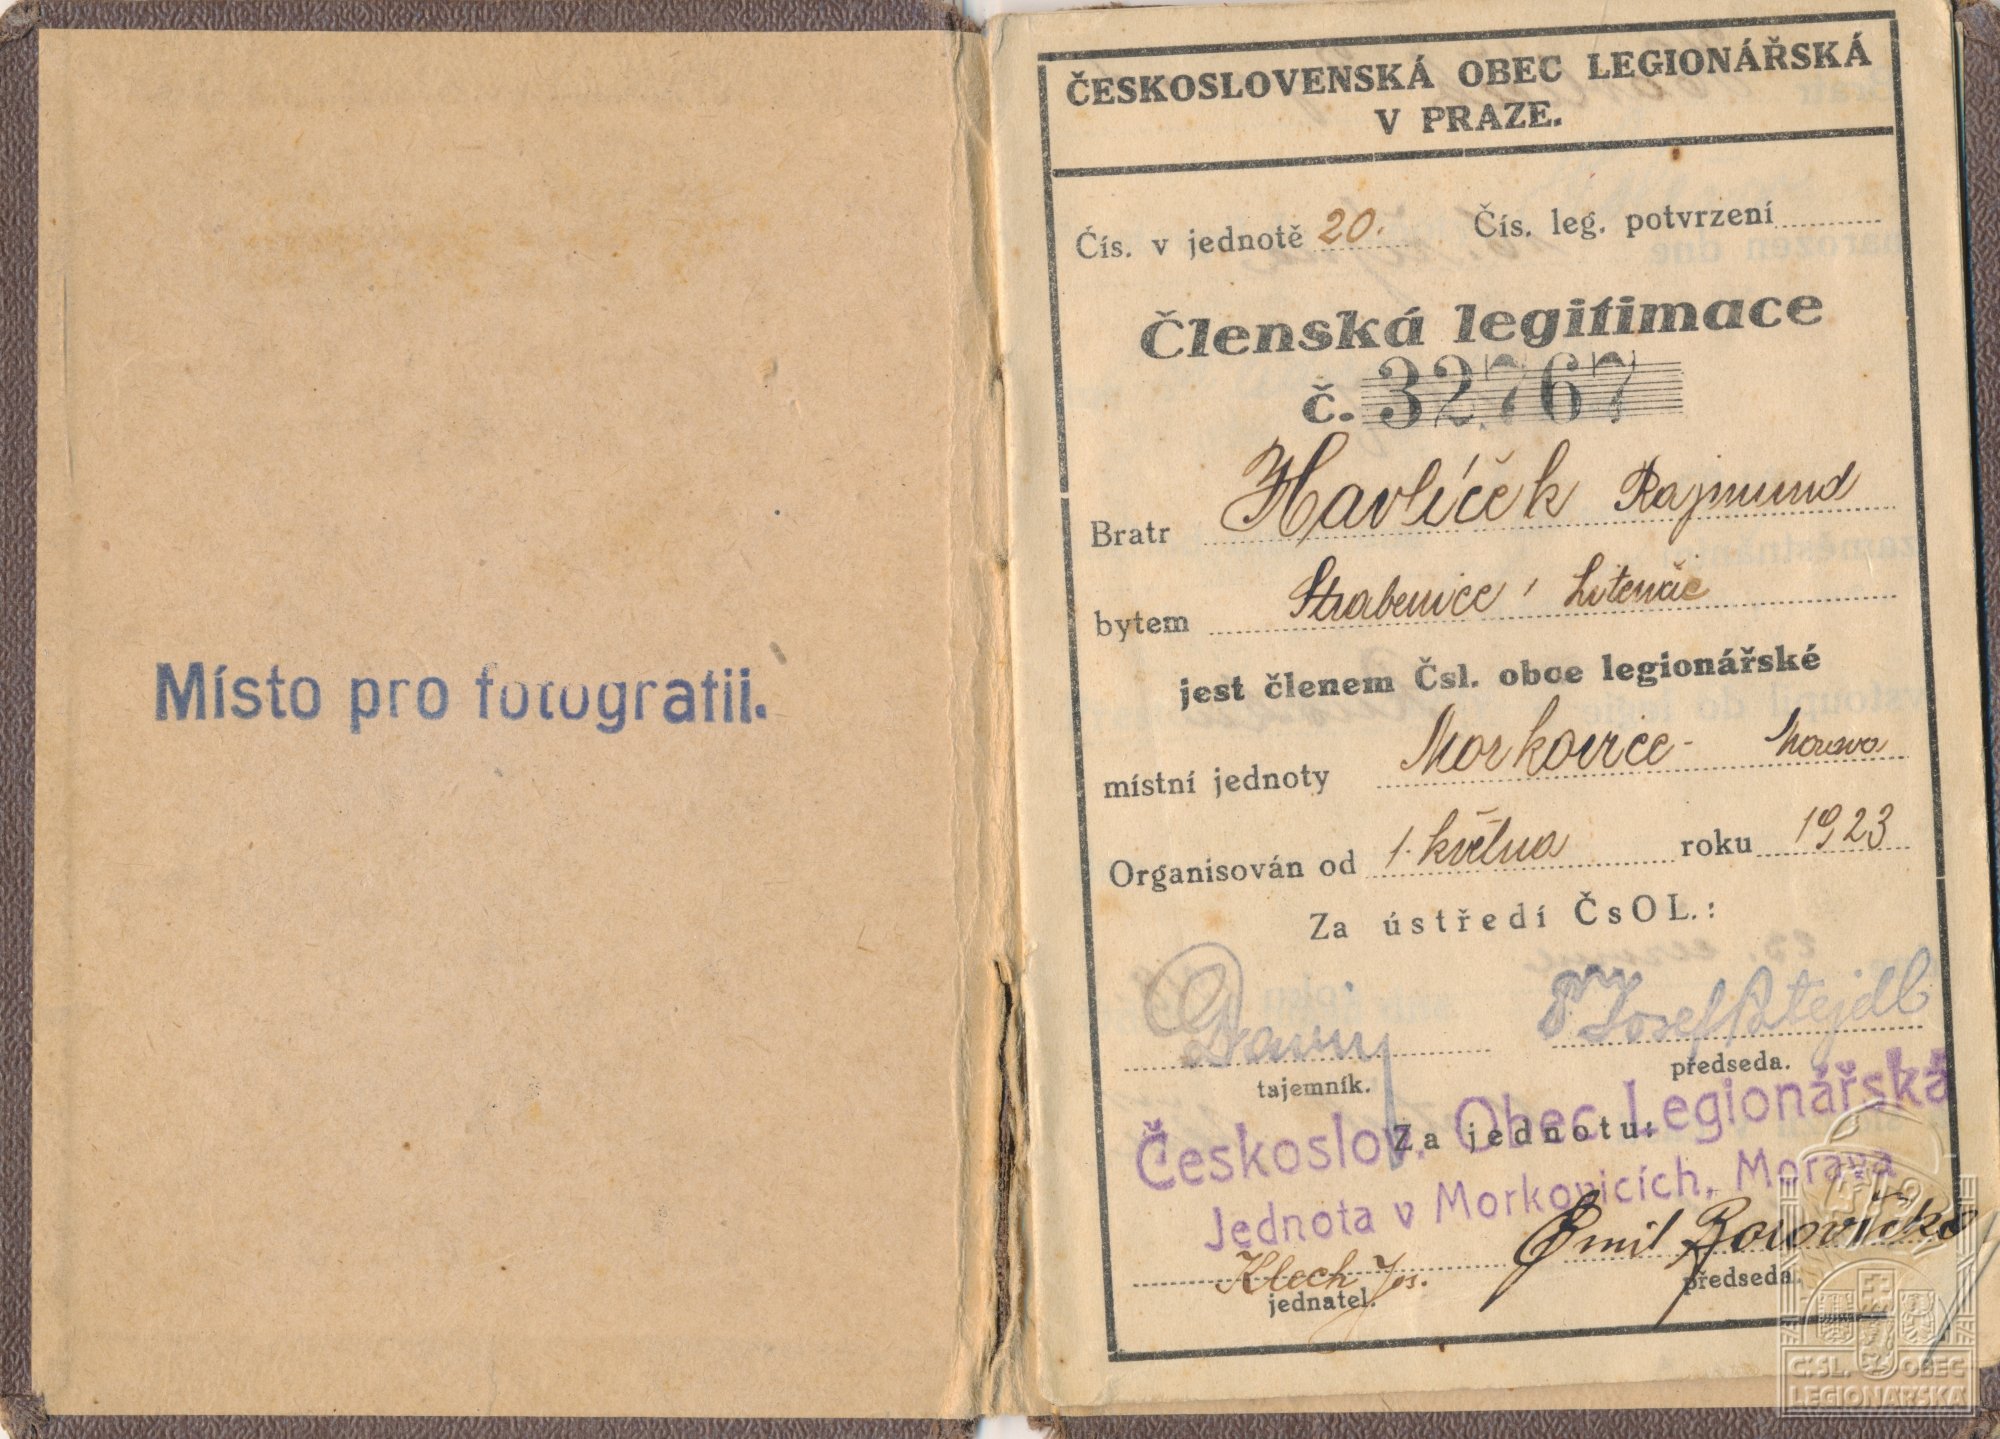 Místo pro fotografii.
ČESKOSLOVENSKÁ OBEC LEGIONÁŘSKÁ
V PRAZE.
Čís. v jednotě 20. Čís. leg. potvrzení
Členská legitimace
č. 32.767
Bratr Havlíček Rajmund
bytem Strabenice, Litenčic
jest členem Čsl. obce legionářské
místní jednoty Morkovice - Morava
Organisován od 1. května roku 1923
Za ústředí ČsOL.:
Josef
tajemník. předseda.
Českoslov. Obec Legionářská
Za jednotu:
Jednota v Morkovicích, Morava
Klech Jos. Emil
jednatel. předseda.
ČSL. OBEC
LEGIONÁŘSKÁ